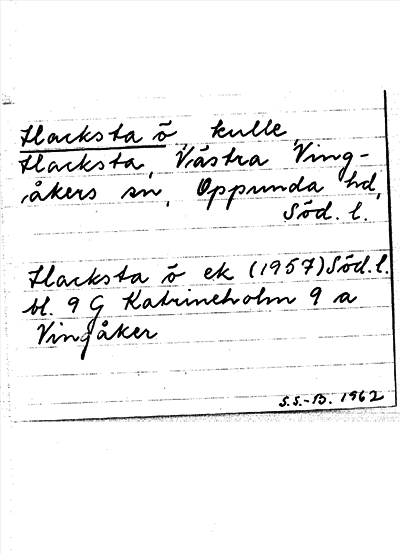 Hacksta ö, kulle,
Hacksta, Västra Ving-
åkers sn, Oppunda hd,
Söd. l.
Hacksta ö ek (1957) Söd. l.
bl. 9 G Katrineholm 9 a
Vingåker
S.S.-B. 1962